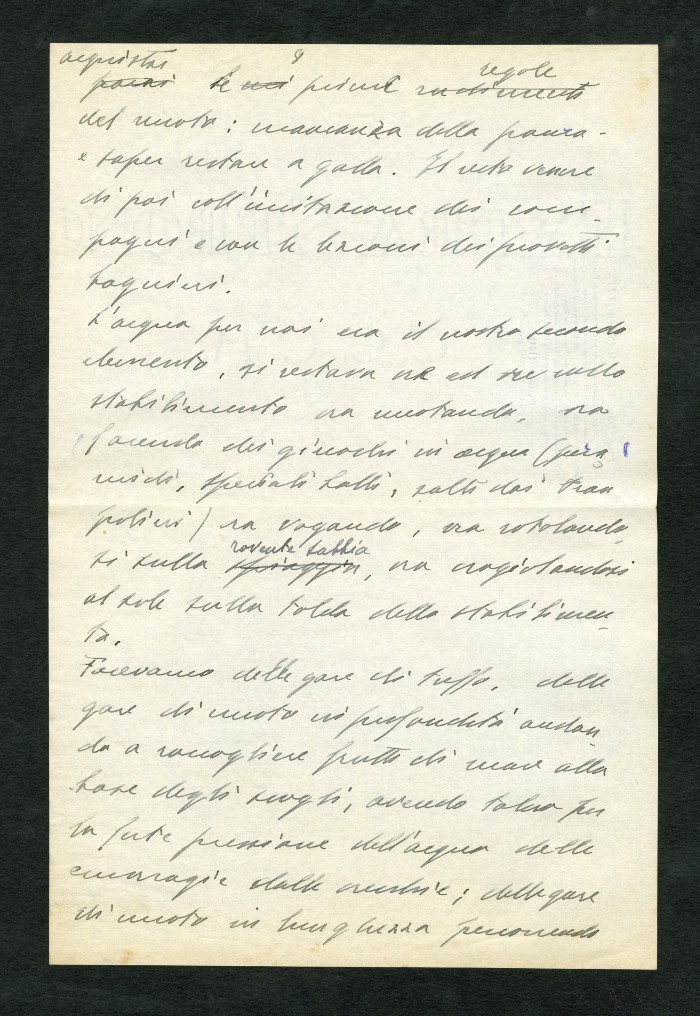 acquistai regole
parai le mi prime rudimenti
del nuoto: mancanza della paura
e saper restare a galla. Il resto venne
di poi coll'imitazione dei com-
pagni e con le lezioni dei provetti
bagnini.
L'acqua per noi era il nostro secondo
elemento, si restava ore ed ore sullo
stabilimento ora nuotando, ora
facendo dei giuochi in acqua (pira
midi, speciali balli, salti dai tram
polini) ora vogando, ora rotolando
si sulla rovente sabbia spiaggia, ora crogiolandosi
al sole sulla tolda dello stabilimen-
to.
Facevamo delle gare di tuffo, delle
gare di nuoto in profondità andan
do a raccogliere frutti di mare alla
base degli scogli, avendo talora per
la forte pressione dell'acqua delle
emorragie dalle orecchie; delle gare
di nuoto in lunghezza percorrendo